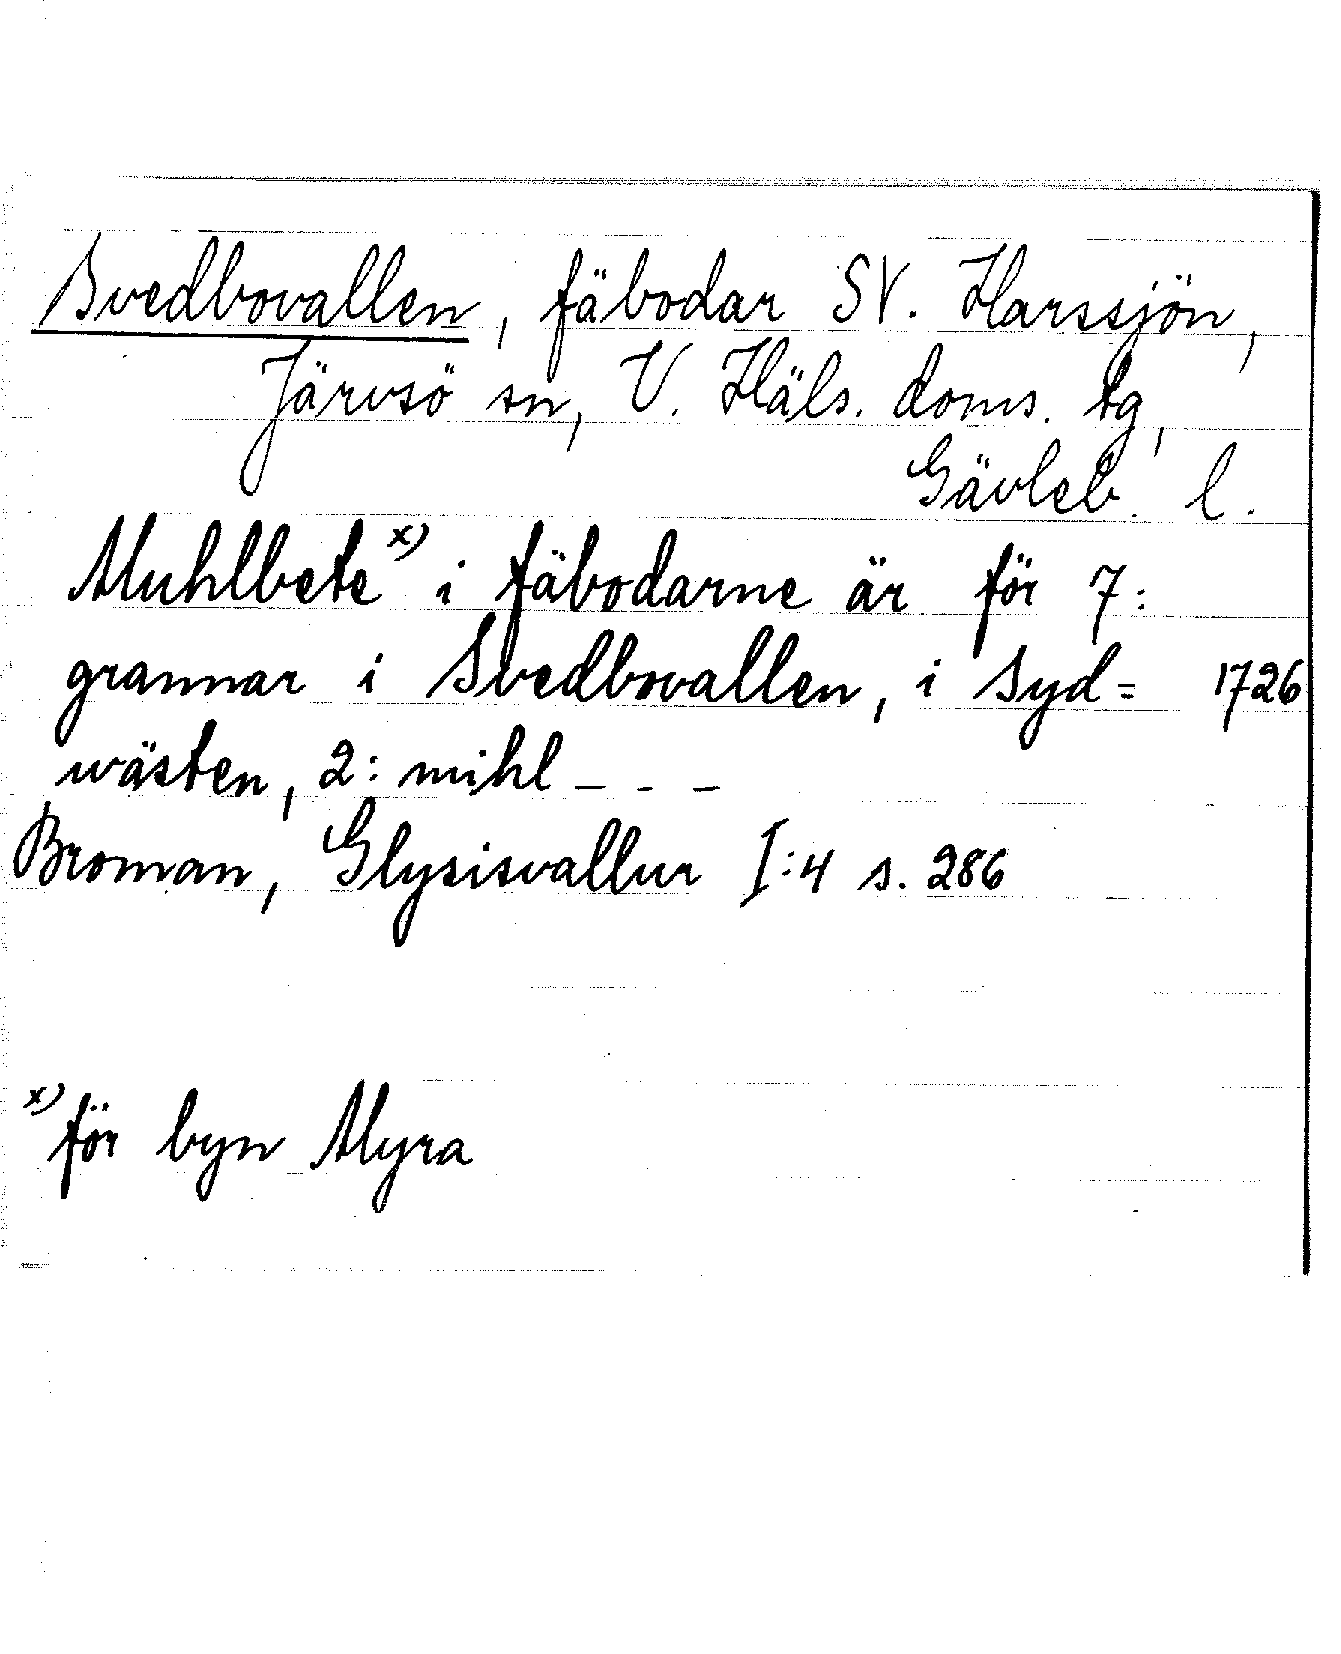 Svedbovallen, fäbodar SV. Harssjön,
Järvsö sn, V. Häls. doms. tg,
Gävleb. l.
Muhlbete x) i fäbodarne är för 7:
grannar i Svedbovallen, i Syd= 1726
wästen, 2: mihl _ _ _
Broman, Glysisvallur I:4 s. 286
x) för byn Myra